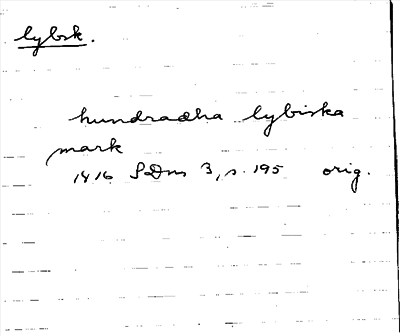 lybsk.
hundradha lybiska
mark
1416 SDns 3, s. 195 orig.